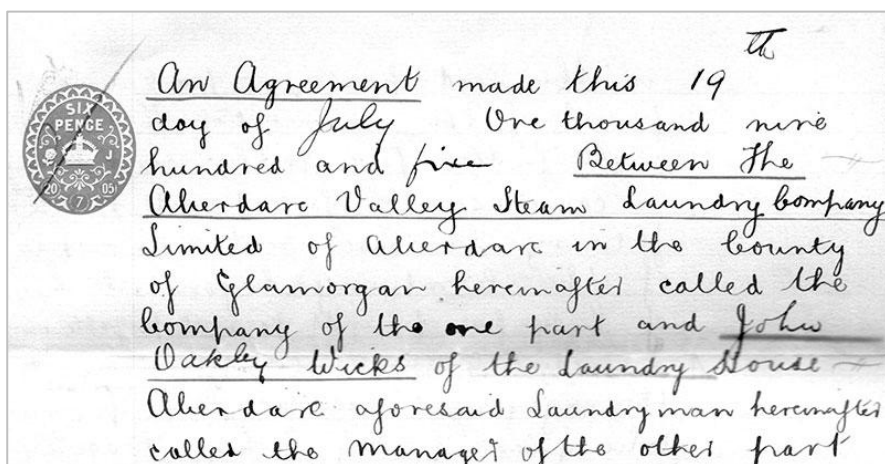 SIX
PENCE
J
20 05
7
An Agreement made this 19th
day of July One thousand nine
hundred and five Between The
Aberdare Valley Steam Laundry Company
Limited of Aberdare in the County
of Glamorgan hereinafter called the
Company of the one part and John
Oakley Wicks of the Laundry House
Aberdare aforesaid Laundryman hereinafter
called the Manager of the other part